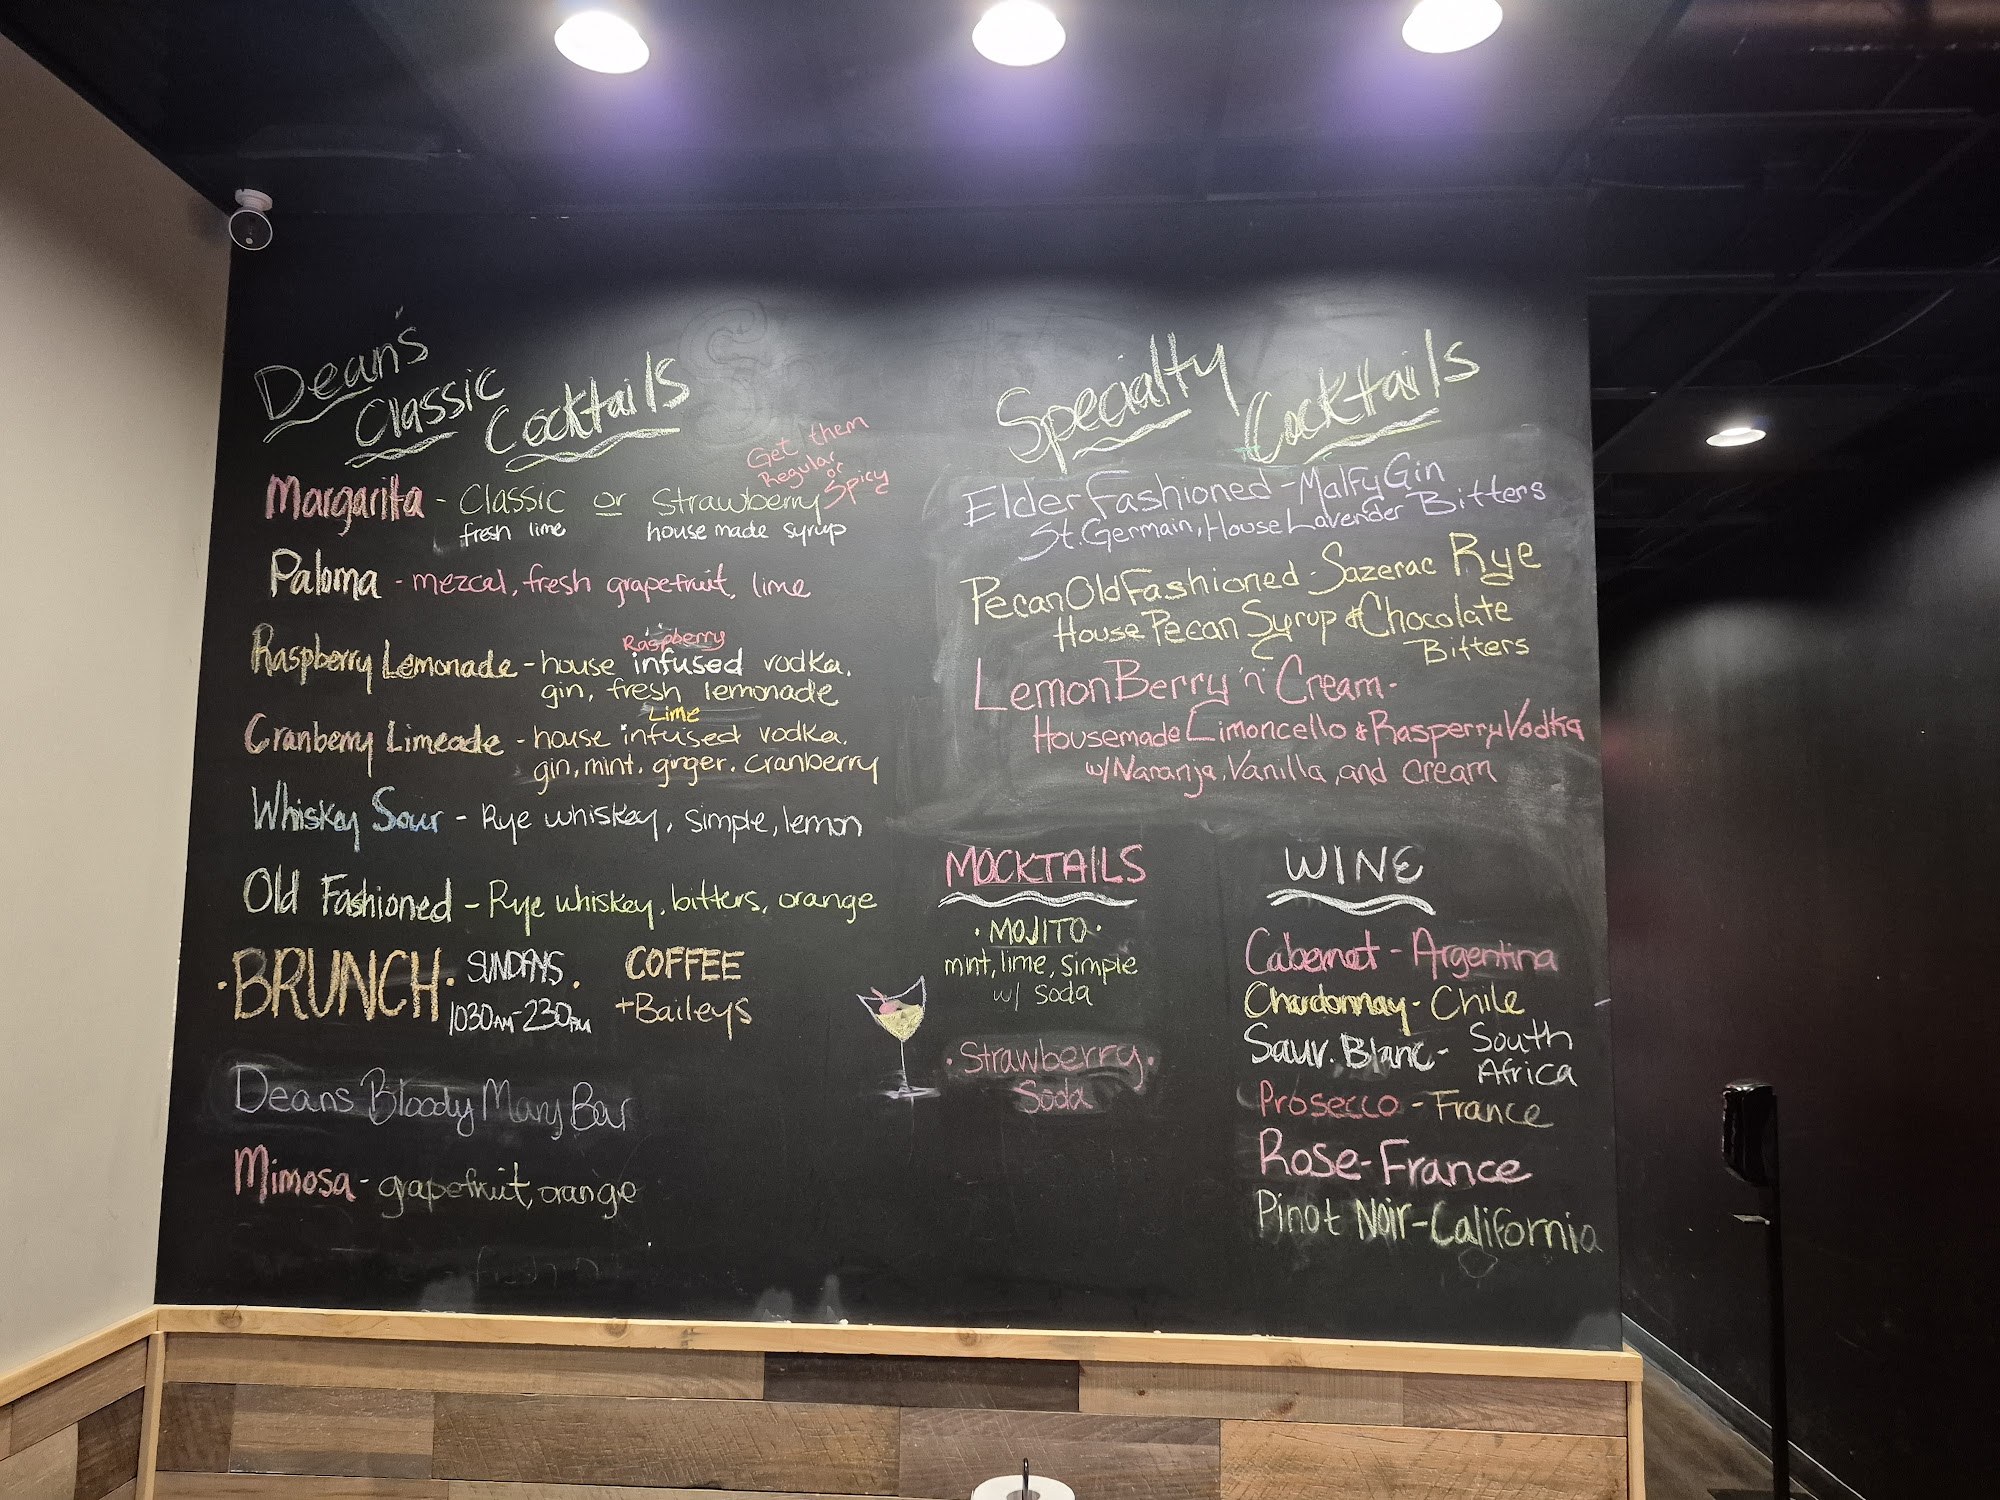 Dean's
Classic
Cocktails
Get them
Regular
or
Spicy
Margarita - Classic or Strawberry
fresh lime house made syrup
Paloma - mezcal, fresh grapefruit, lime
Raspberry
Raspberry Lemonade - house infused vodka,
gin, fresh lemonade
Lime
Cranberry Limeade - house infused vodka,
gin, mint, ginger, cranberry
Whiskey Sour - Rye whiskey, simple, lemon
Old Fashioned - Rye whiskey, bitters, orange
· BRUNCH · SUNDAYS ·
1030AM-230PM
COFFEE
+Baileys
Deans Bloody Mary Bar
Mimosa - grapefruit, orange
Specialty
Cocktails
Elder Fashioned - Malfy Gin
St. Germain, House Lavender Bitters
Pecan Old Fashioned - Sazerac Rye
House Pecan Syrup & Chocolate
Bitters
LemonBerry 'n' Cream -
Housemade Limoncello & Rasperry Vodka
w/ Naranja, Vanilla, and cream
MOCKTAILS
· MOJITO ·
mint, lime, simple
w/ soda
· Strawberry ·
Soda
WINE
Cabernet - Argentina
Chardonnay - Chile
Sauv. Blanc - South
Africa
Prosecco - France
Rose - France
Pinot Noir - California